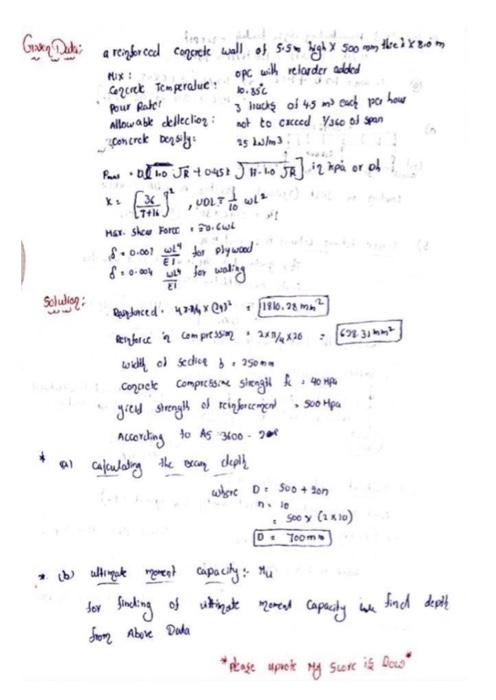 Given Data: a reinforced concrete wall of 5.5m high x 500 mm thick x 8.0 m
Mix : OPC with retarder added
Concrete Temperature : 10.85c
Pour Rate: 3 trucks of 4.5 m3 each per hour
Allowable deflection : not to exceed 1/360 of span
Concrete Density: 25 kN/m3
= D [1.0 √R + 0.45k √H-1.0 √R] in kpa or
K = [36/T+16]², UDL = 1/10 wL²
Max. Shear Force = 0.6wL
δ = 0.007 wL⁴/EI for plywood
δ = 0.004 wL⁴/EI for waling
Solution:
Reinforced = 4 x π/4 x (24)² = 1810.28 mm²
Reinforce in compression = 2xπ/4 x20 = 628.31 mm²
width of section b = 250mm
Concrete Compressive strength fc = 40 Mpa
yield strength of reinforcement = 500 Mpa
According to AS 3600 -
* (a) Calculating the beam depth
where D = 500 + 20n
n = 10
= 500 + (2x10)
D = 700mm
* (b) Ultimate moment capacity:- Mu
for finding of ultimate moment capacity we find depth
from Above Data
*Please upvote My Score is Dow*